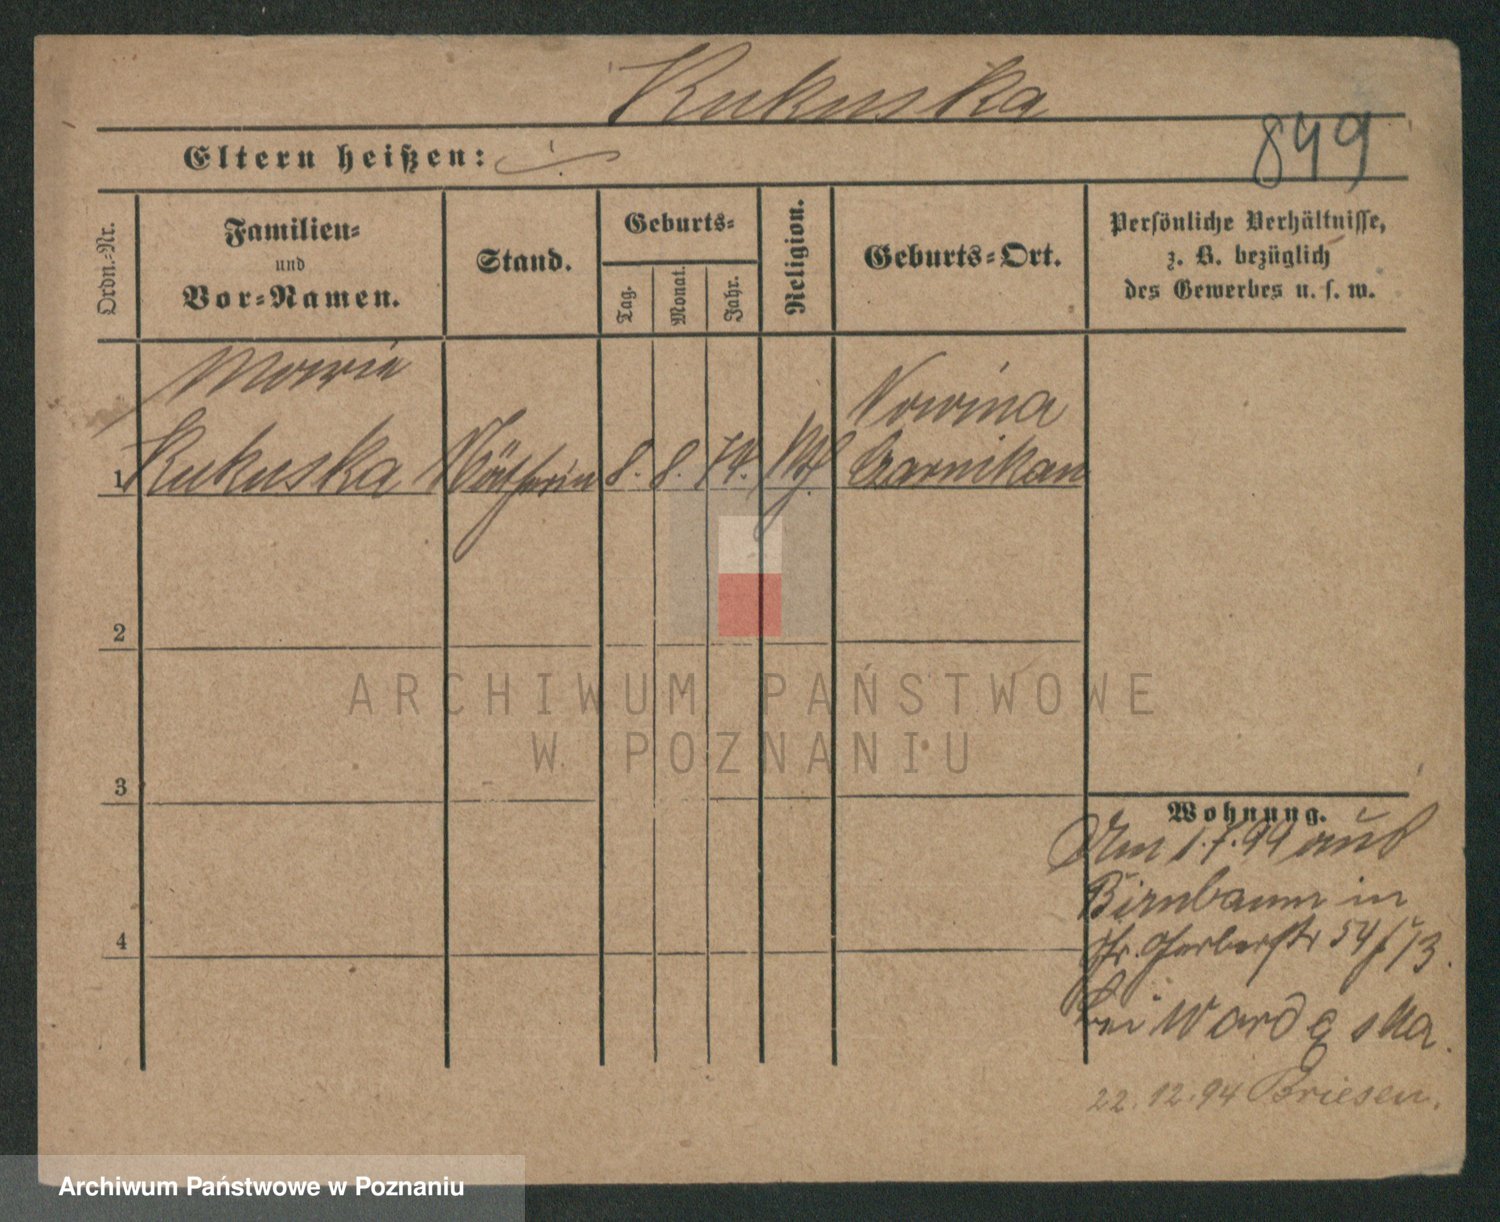 Kukuska
849
Eltern heißen: ∙/∙
Ordn.-Nr.
Familien-
und
Vor-Namen.
Stand.
Geburts-
Tag.
Monat.
Jahr.
Religion.
Geburts-Ort.
Persönliche Verhältnisse,
z. B. bezüglich
des Gewerbes u. s. w.
Marie
1 Kukuska Nätherin 8. 8. 74. kth.
Nowina
Czarnikau
2
3
4
Wohnung.
Am 1.7.94 aus
Birnbaum in
Gr. Gerberstr 54
bei
22.12.94 Briesen.
ARCHIWUM PAŃSTWOWE
W POZNANIU
Archiwum Państwowe w Poznaniu